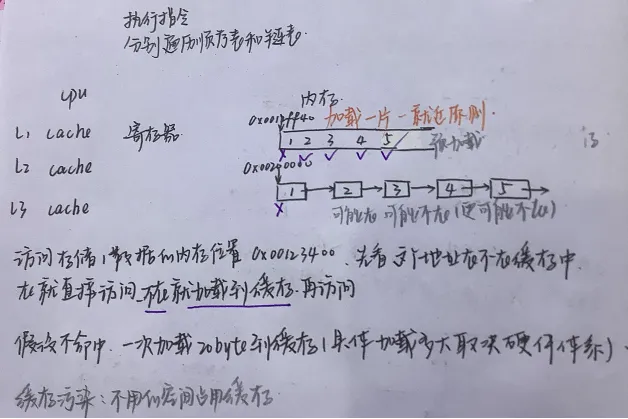 执行指令
分别遍历顺序表和链表
cpu
内存
L1 cache 寄存器
加载一片-就近原则
1 2 3 4 5 预加载
L2 cache
1 2 3 4 5
L3 cache
可能在 可能不在(更可能不在)
访问存储1数据的内存位置 0x00123400 先看这个地址在不在缓存中
在就直接访问 不在就加载到缓存 再访问
假设不命中 一次加载20byte到缓存(具体加载多大取决硬件体系)
缓存污染:不用的空间占用缓存